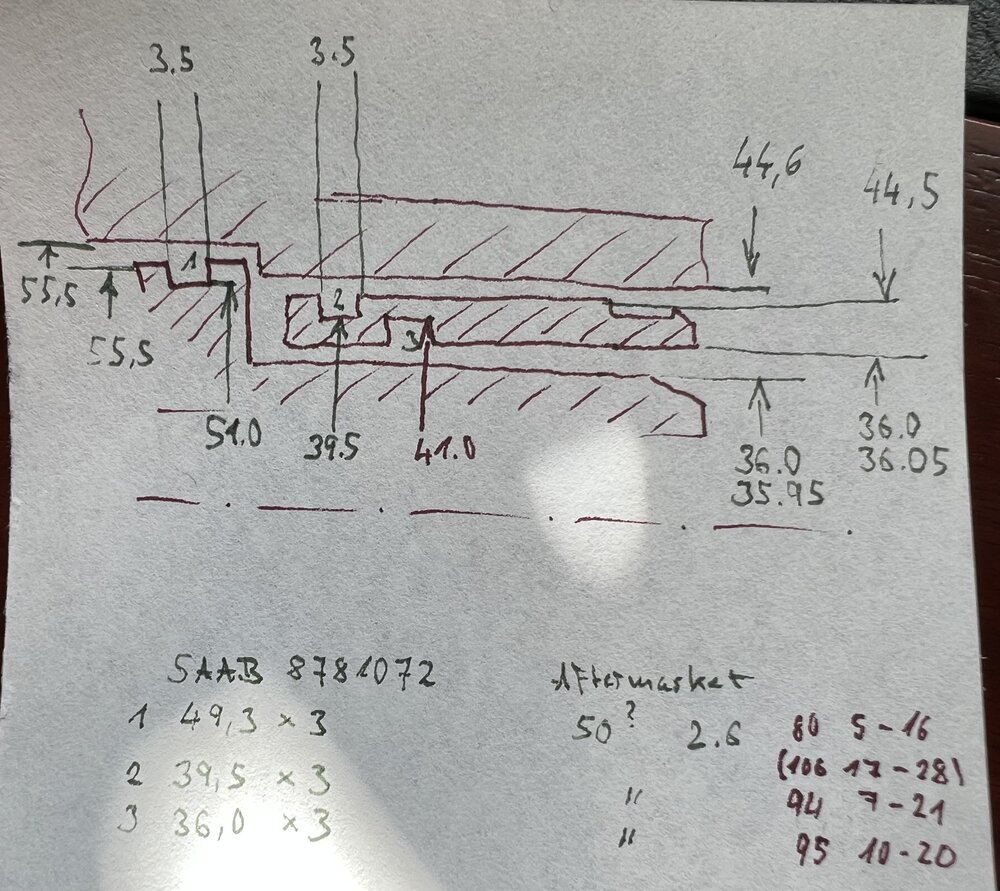 3.5 3.5
44,6
44,5
1
55,5
2
55,5
3
51.0
39.5
41.0
36.0
36.05
36.0
35.95
SAAB 8781072 Aftermarket
1 49,3 × 3 50? 2.6 80 5-16
(106 17-28)
2 39,5 × 3 " 94 7-21
3 36,0 × 3 " 95 10-20